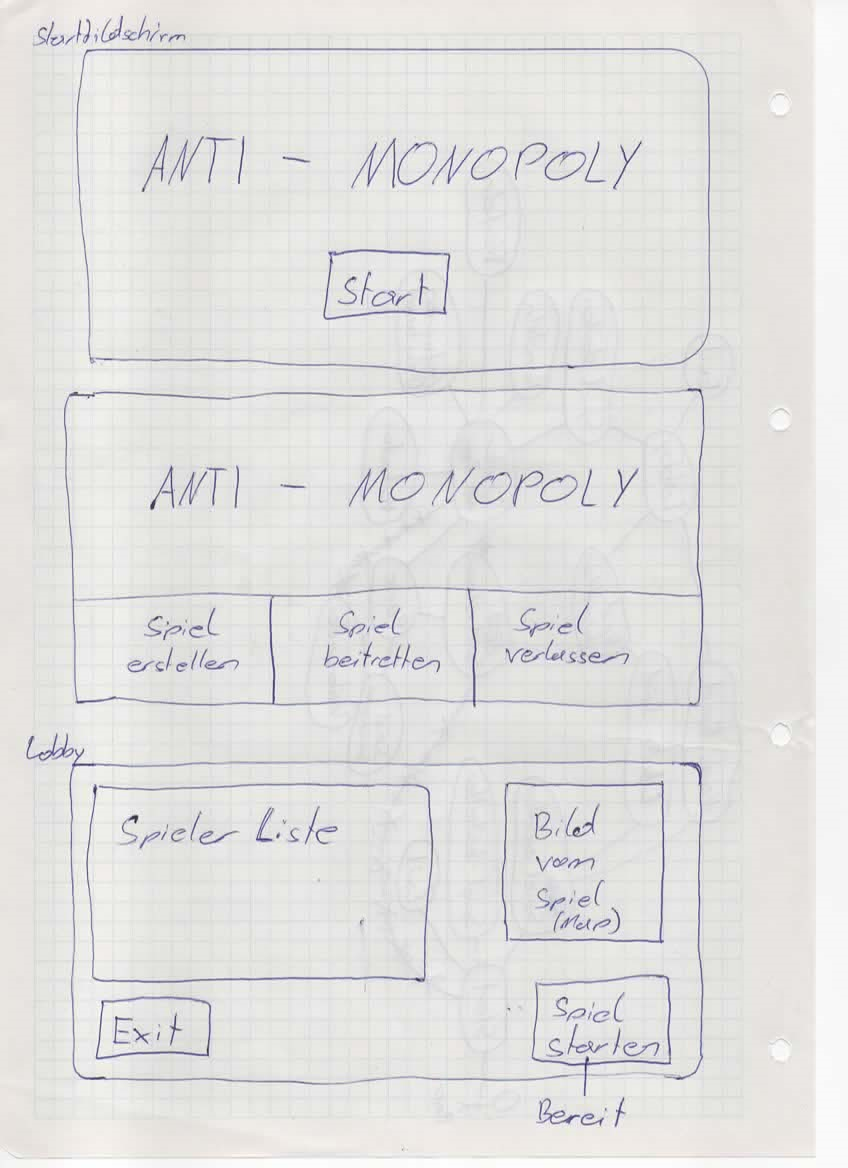 Startbildschirm
ANTI - MONOPOLY
Start
ANTI - MONOPOLY
Spiel
erstellen
Spiel
beitretten
Spiel
verlassen
Lobby
Spieler Liste
Bild
vom
Spiel
(Map)
Exit
Spiel
starten
Bereit